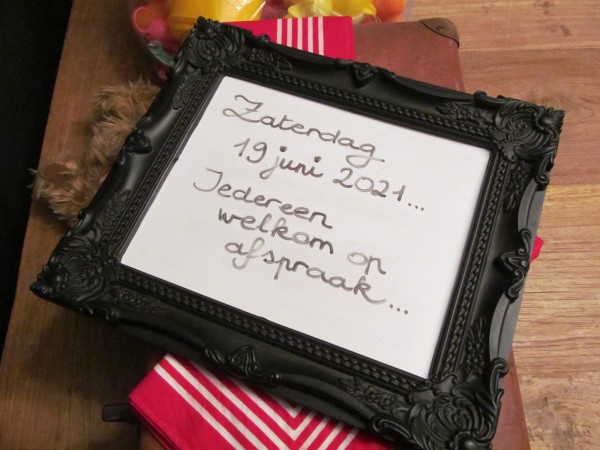 Zaterdag
19 juni 2021...
Iedereen
welkom op
afspraak...